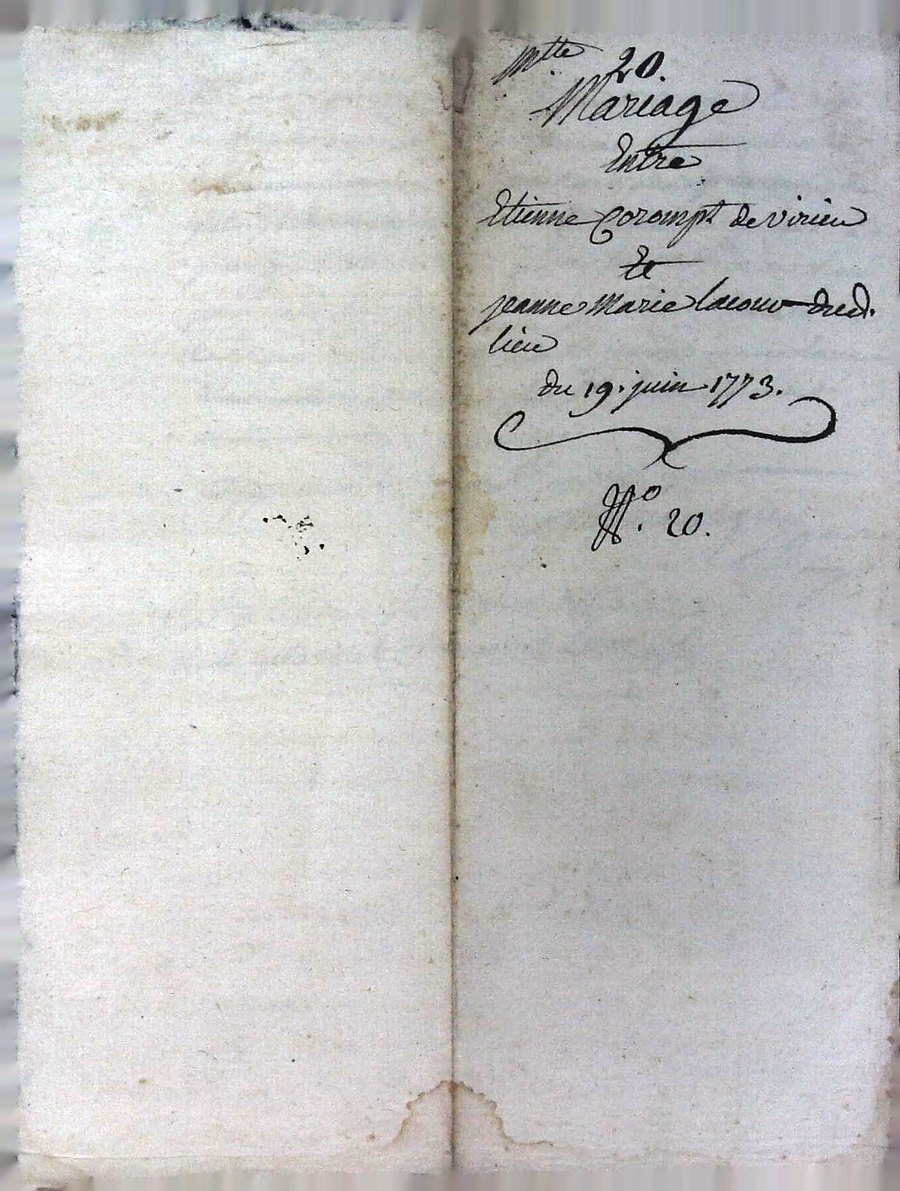 mtte 20.
Mariage
Entre
Etienne Corompt de virieu
Et
jeanne Marie lacour dud.
lieu
du 19. juin 1773.
N.º 20.